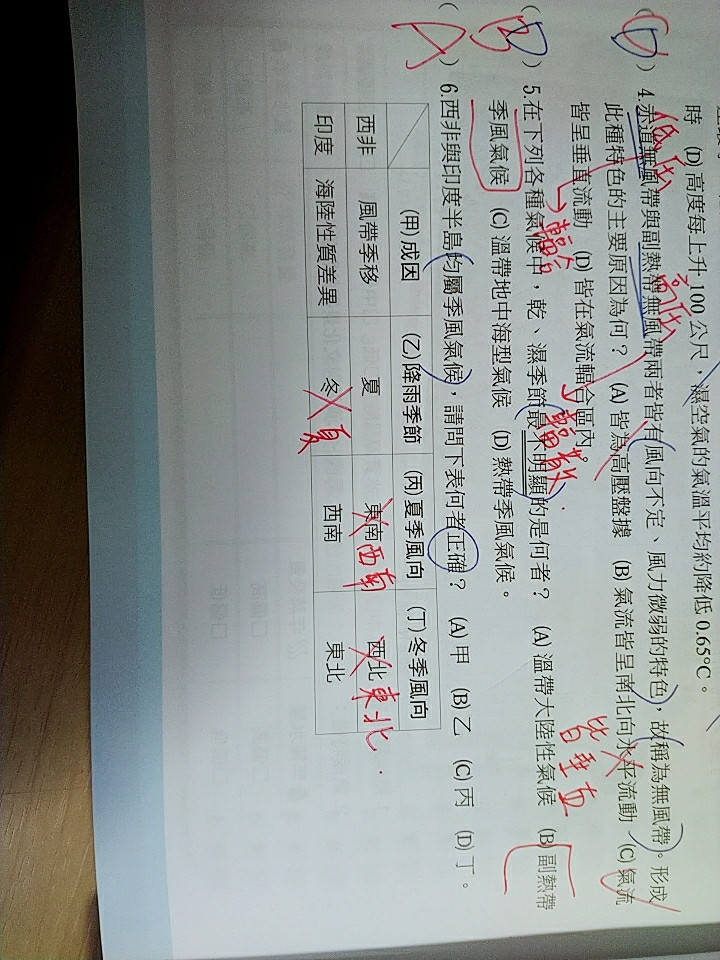 時　(D)高度每上升100公尺，濕空氣的氣溫平均約降低0.65°C。
(C) 4.赤道無風帶與副熱帶無風帶兩者皆有風向不定、風力微弱的特色，故稱為無風帶。形成
低壓
高壓
此種特色的主要原因為何？　(A)皆為高壓盤據　(B)氣流皆呈南北向水平流動　(C)氣流
皆呈垂直流動　(D)皆在氣流輻合區內。
輻合
輻散
皆垂直
(B) 5.在下列各種氣候中，乾、濕季節最不明顯的是何者？　(A)溫帶大陸性氣候　(B)副熱帶
季風氣候　(C)溫帶地中海型氣候　(D)熱帶季風氣候。
(A) 6.西非與印度半島均屬季風氣候，請問下表何者正確？　(A)甲　(B)乙　(C)丙　(D)丁。
(甲)成因　(乙)降雨季節　(丙)夏季風向　(丁)冬季風向
西非　風帶季移　夏　東南 西南　西北 東北
印度　海陸性質差異　冬 夏　西南　東北